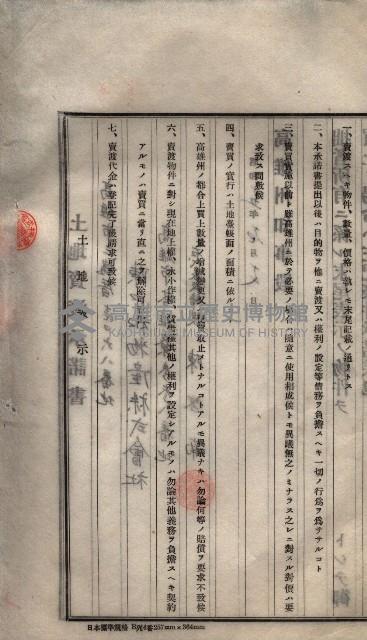 一、賣渡スヘキ物件、數量、價格ハ執レモ末尾記載ノ通リトス
二、本承諾書提出以後ハ目的物ヲ他ニ賣渡又ハ權利ノ設定等借務ヲ負擔スヘキ一切ノ行爲ヲ爲サルコト
三、賣買實施以前ト雖高雄州ニ於テ必要ノ場合隨意ニ使用相成候トモ異議無之ノミナラス之レニ對スル對價ハ要
求致ス間敷候
四、賣買ノ實行ハ土地臺帳面ノ面積ニ依ル
五、高雄州ノ都合上買上數量ノ增減變更又ハ買賣取止メトナルコトアルモ異議ナキハ勿論何等ノ賠償ヲ要求不致候
六、賣渡物件ニ對シ現在地上權、永小作權、賃貸權其他ノ權利ヲ設定シアルモノハ勿論其他義務ヲ負擔スヘキ契約
アルモノハ賣買ニ當リ直ニ之ヲ解除可
七、賣渡代金ハ登記完了後請求可致候
土地表示
高雄市立歷史博物館
KAOHSIUNG MUSEUM OF HISTORY
日本標準規格 B列4番257mm×364mm